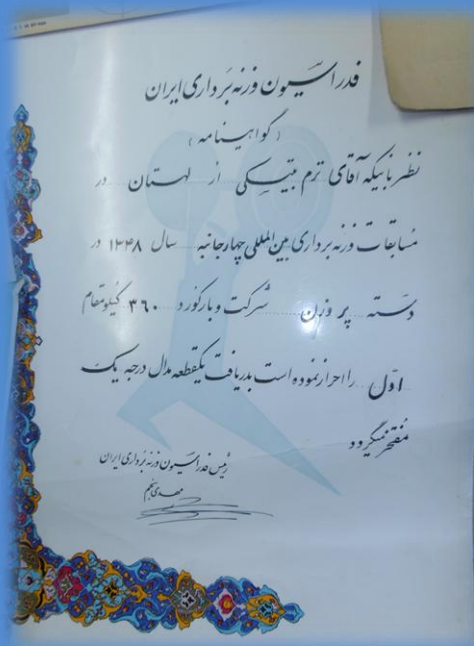 فدراسیون وزنه برداری ایران
(گواهینامه)
نظر باینکه آقای ترم بیتسکی از لهستان در
مسابقات وزنه برداری بین المللی چهارجانبه سال ۱۳۴۸ در
دسته پر وزن شرکت و بارکورد ۳۶۰ کیلو مقام
اول را احراز نموده است بدریافت یکقطعه مدال درجه یک
مفتخر میگردد
رئیس فدراسیون وزنه برداری ایران
مهدی